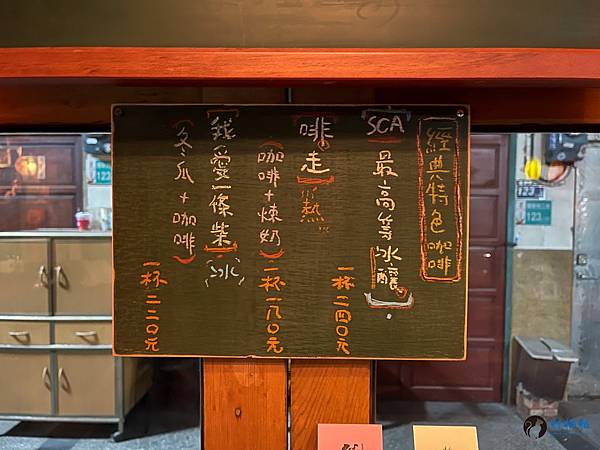 經典特色咖啡
SCA
最高等冰釀
一杯二四〇元
啡走
熱
(咖啡+煉奶)
一杯一八〇元
我愛一條柴
(冰)
(冬瓜+咖啡)
一杯二二〇元
123
123